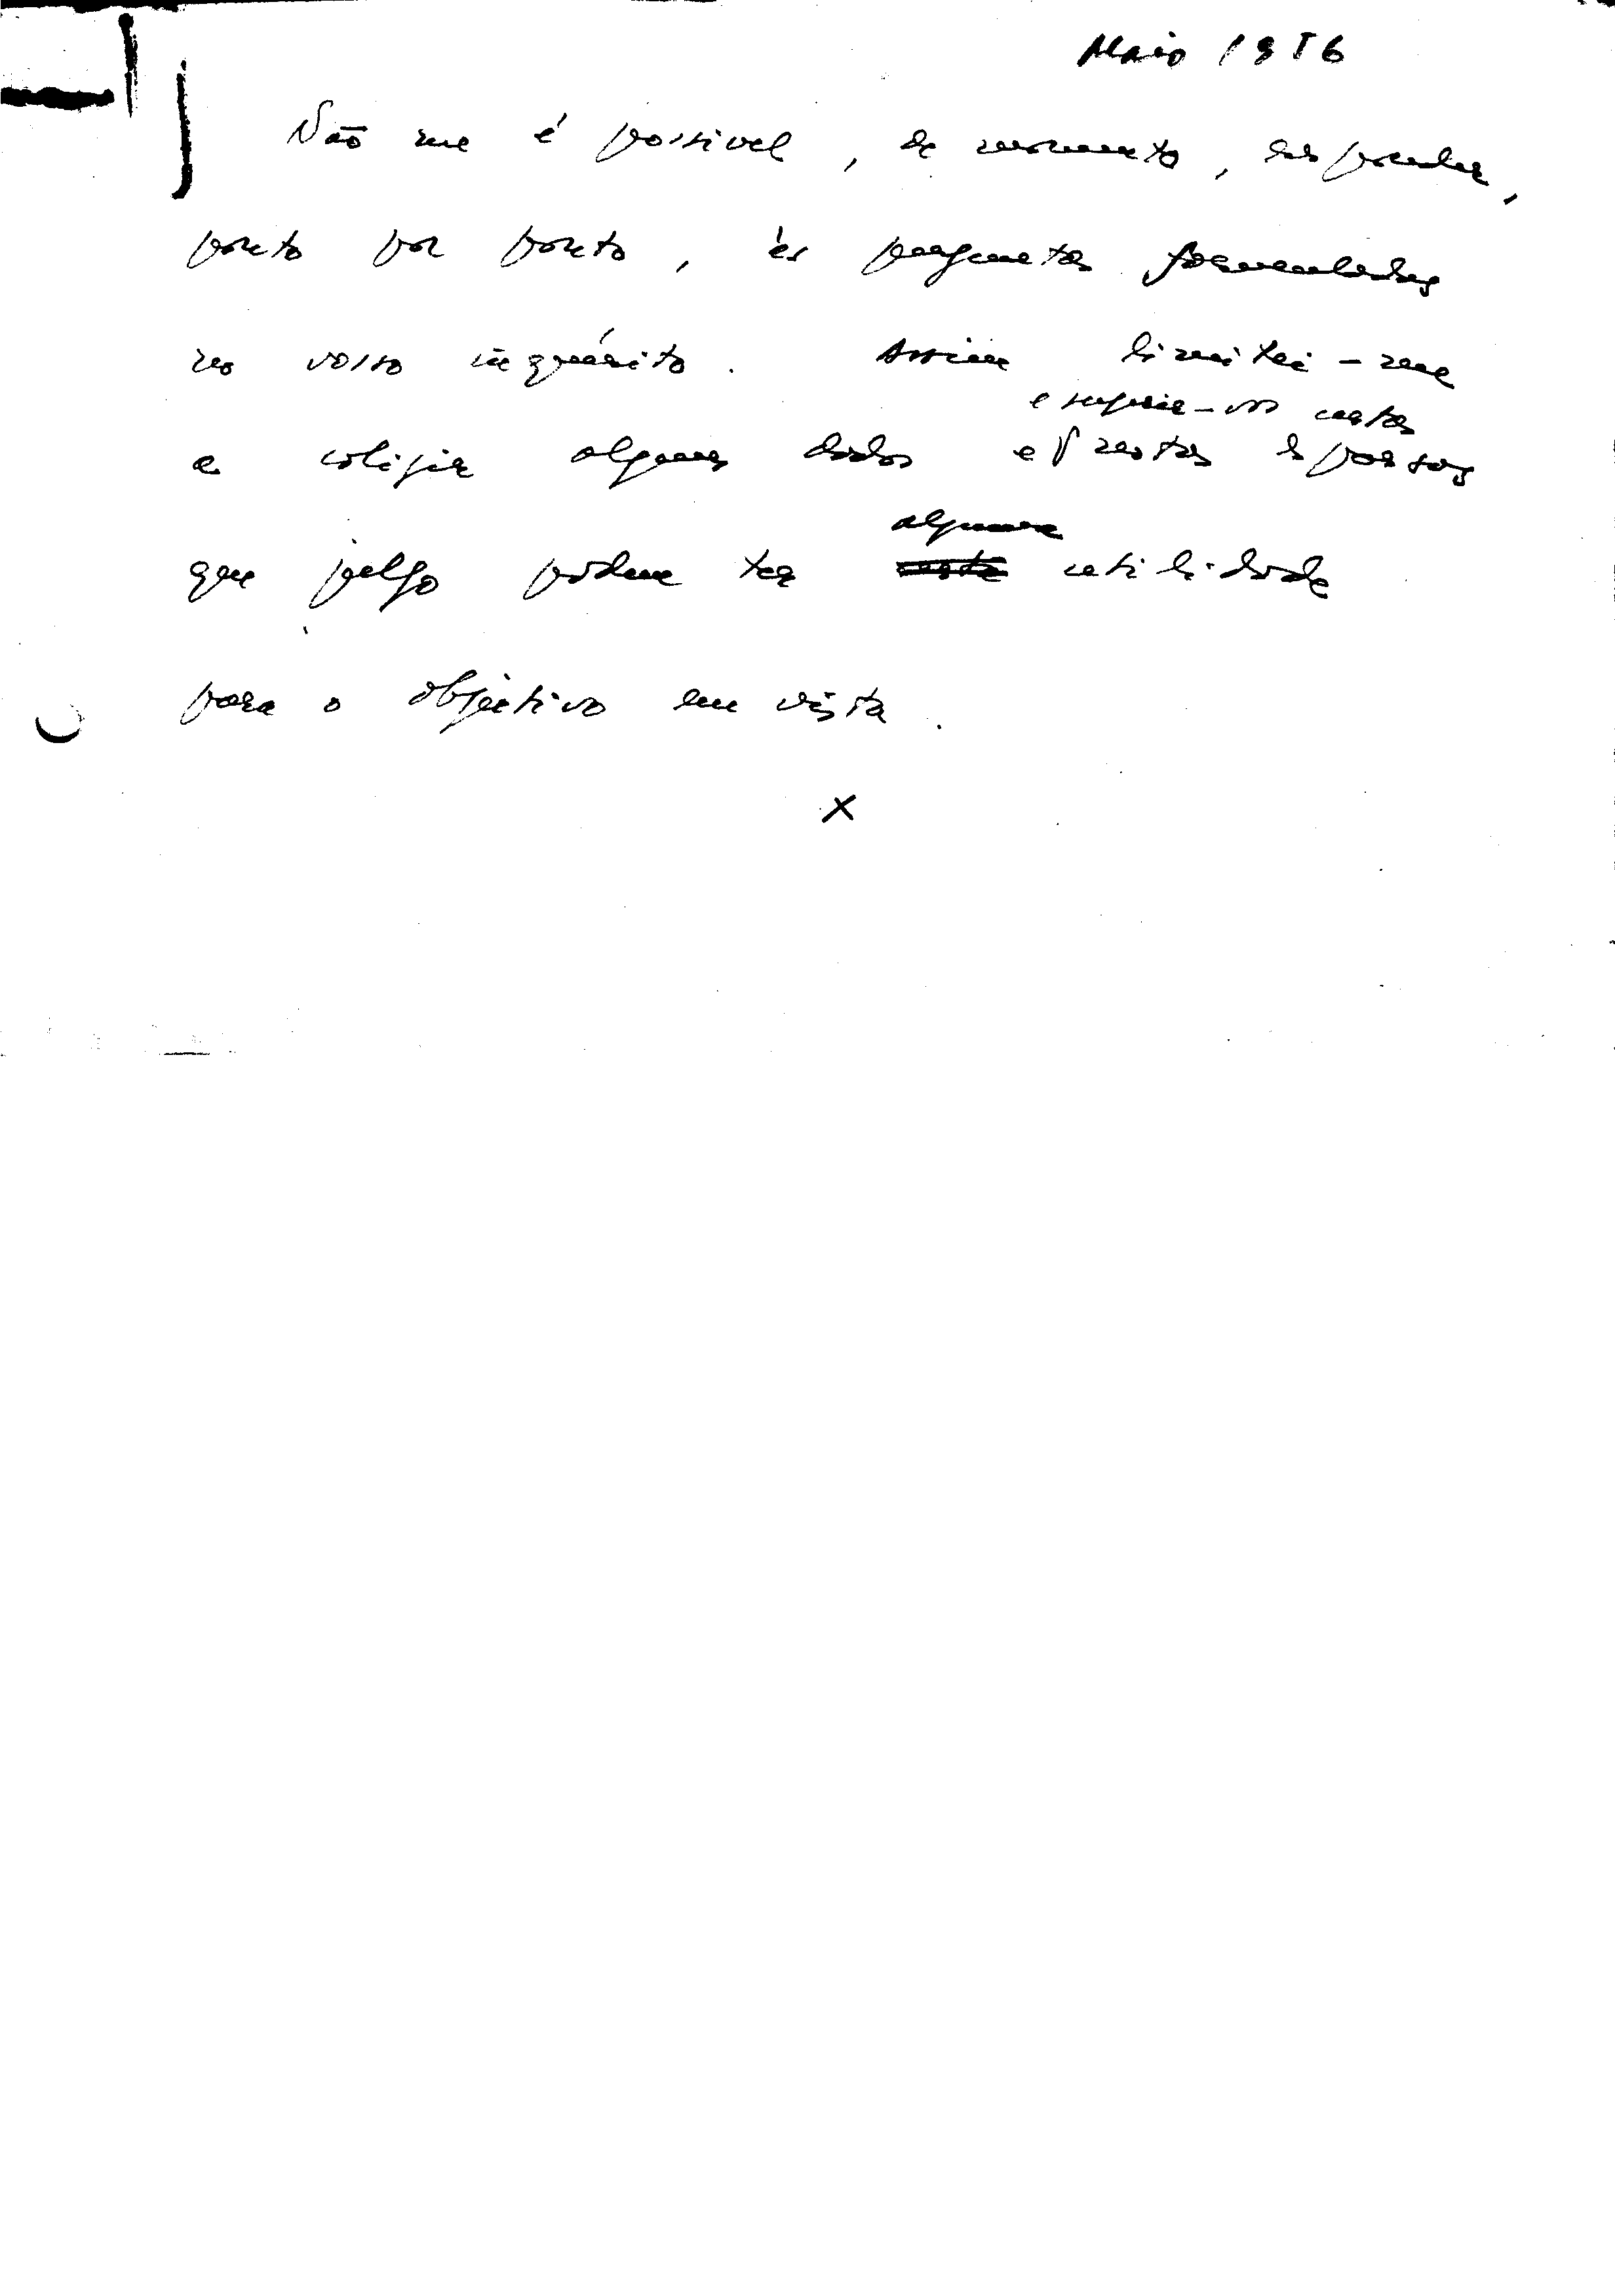 Maio 1956
Não me é possivel, de momento, responder,
ponto por ponto, às perguntas formuladas
no vosso inquérito. Assim limitei-me
e sugerir-vos certas
a coligir alguns dados e notas dispersas
alguma
que julgo podem ter utilidade
para o objectivo em vista.
x